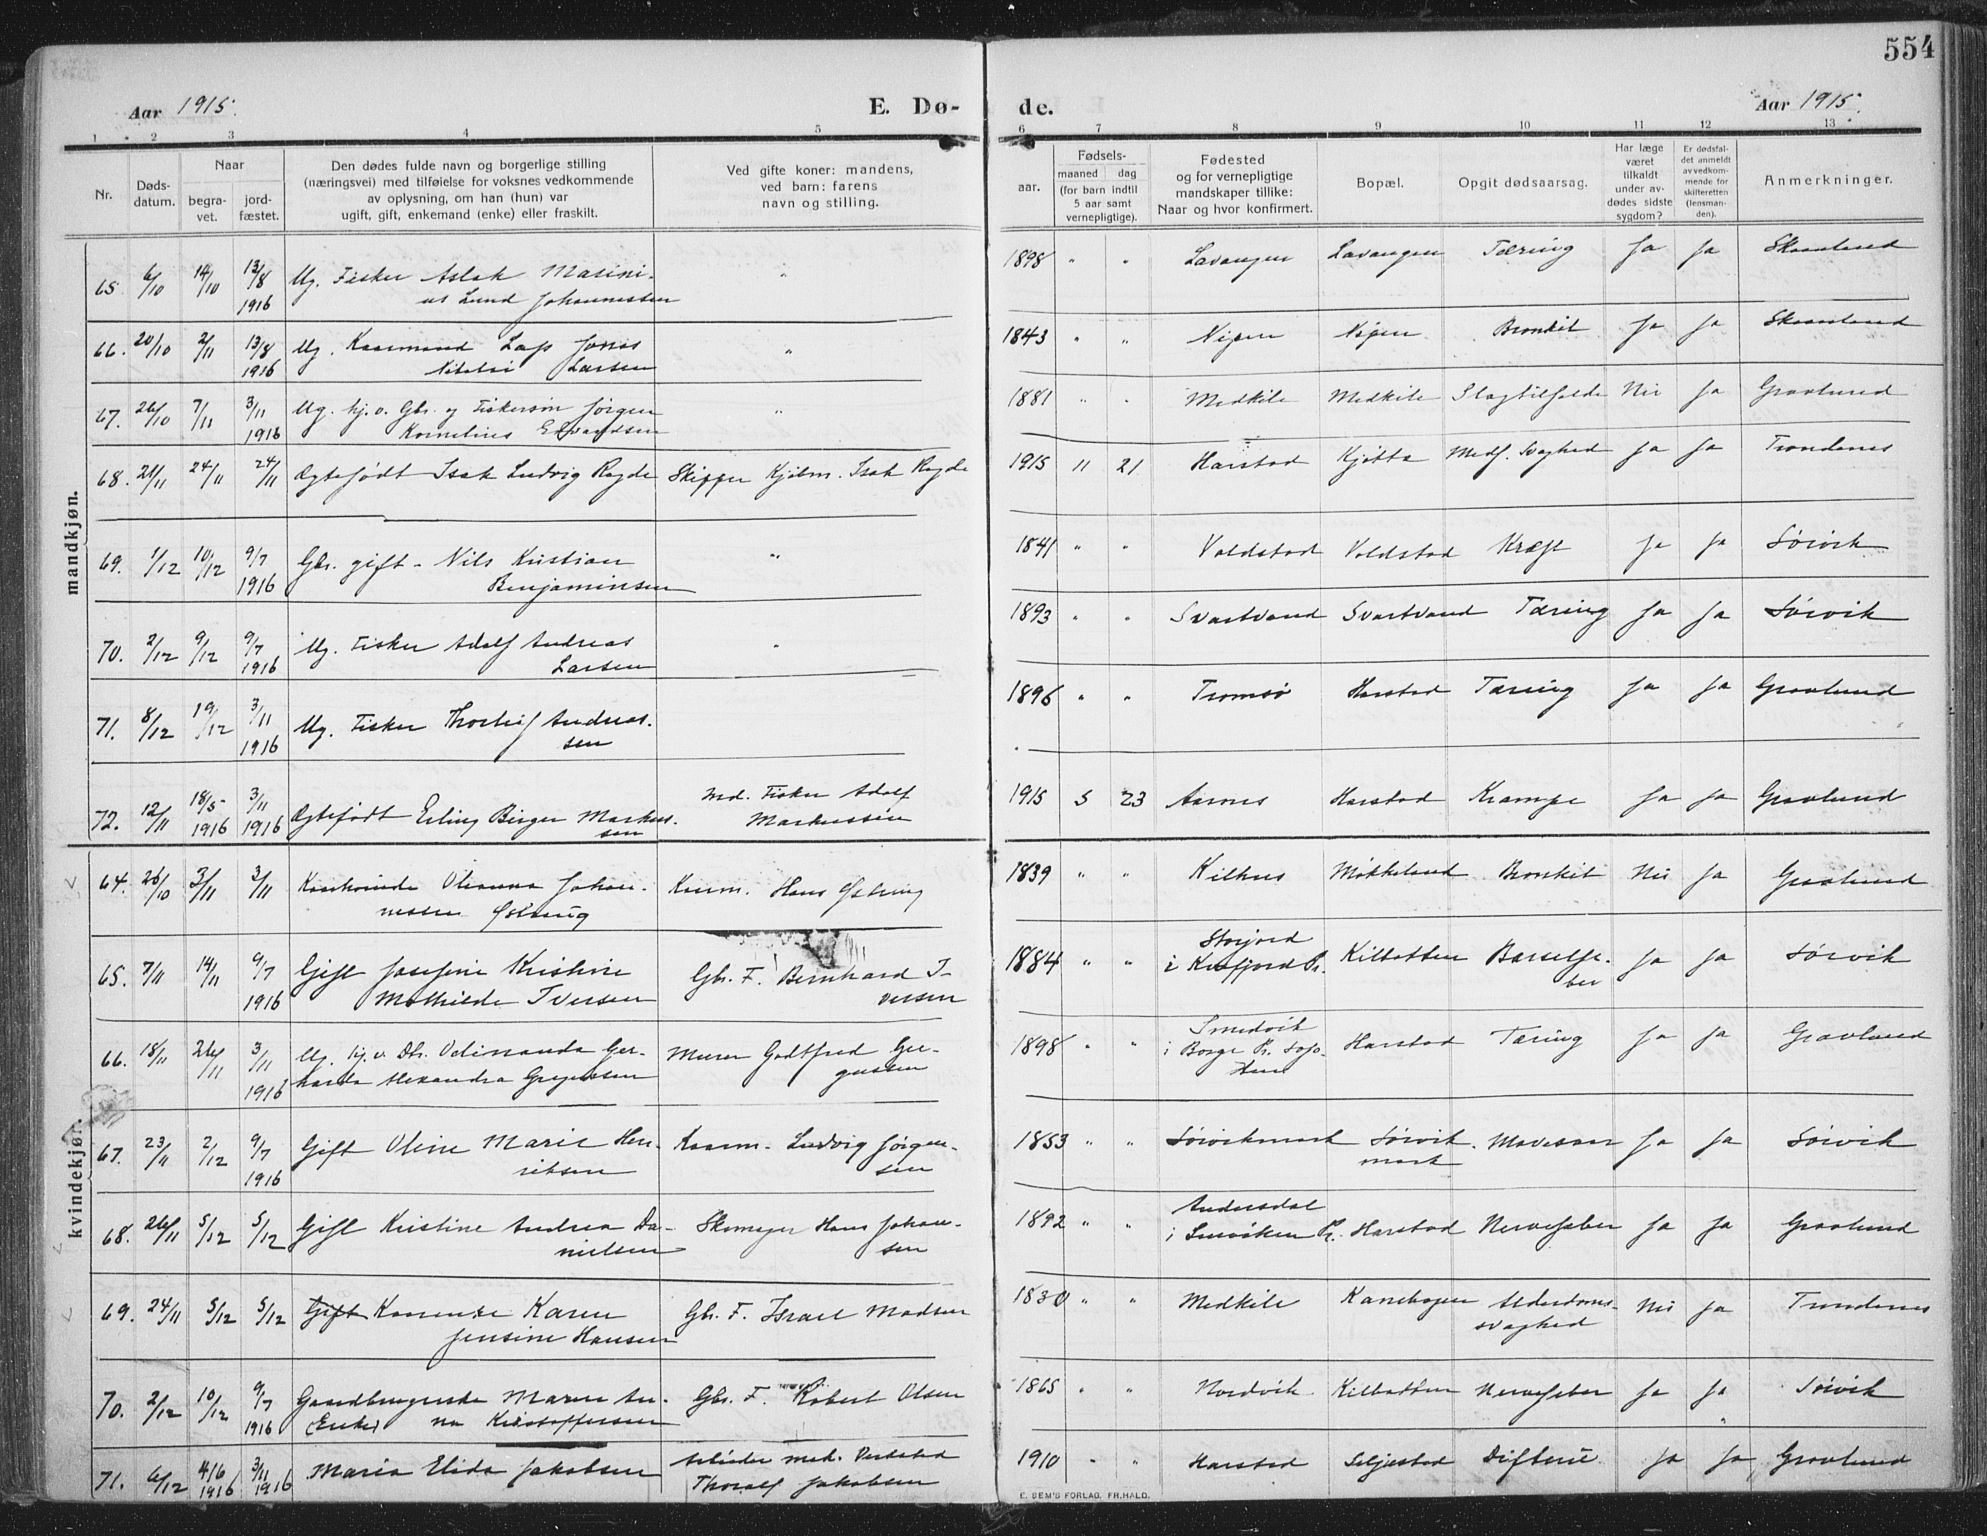 554
Aar 1915.
E. Dø-
de.
Aar 1915.
1 2 3 4 5 6 7 8 9 10 11 12 13
Nr.
Døds-
datum.
Naar
begra-
vet.
jord-
fæstet.
Den dødes fulde navn og borgerlige stilling
(næringsvei) med tilføielse for voksnes vedkommende
av oplysning, om han (hun) var
ugift, gift, enkemand (enke) eller fraskilt.
Ved gifte koner: mandens,
ved barn: farens
navn og stilling.
Fødsels-
aar.
maaned dag
(for barn indtil
5 aar samt
vernepligtige).
Fødested
og for vernepligtige
mandskaper tillike:
Naar og hvor konfirmert.
Bopæl.
Opgit dødsaarsag.
Har læge
været
tilkaldt
under av-
dødes sidste
sygdom?
Er dødsfal-
det anmeldt
av vedkom-
mende for
skifteretten
(lensman-
den).
Anmerkninger.
mandkjøn.
65. 6/10 14/10 13/8 1916 Ug. Fisker Aslak Masini-
us Lund Johannessen " 1898 " " Lavangen Lavangen Tæring Ja Ja Skaanland
66. 20/10 2/11 13/8 1916 Ug. Kaarmand Lap Jonas
Larsen " 1843 " " Nipen Nipen Bronkit Ja Ja Skaanland
67. 26/10 7/11 3/11 1916 Ug. hj. v. Gbr. og Fiskersøn Jørgen
Kornelius Edvardsen " 1881 " " Medkile Medkile Slagtilfælde Nei Ja Gravlund
68. 21/11 24/11 24/11 Ægtefødt Isak Ludvig Røgde Skipper Kjøbm. Isak Røgde 1915 11 21 Harstad Kjøtta Medf. Svaghed Ja Ja Trondenes
69. 1/12 10/12 9/7 1916 Gbr. gift - Nils Kristian
Benjaminsen " 1841 " " Voldstad Voldstad Kræft Ja Ja Sørvik
70. 2/12 9/12 9/7 1916 Ug. Fisker Adolf Andreas
Larsen " 1893 " " Svartvand Svartvand Tæring Ja Ja Sørvik
71. 8/12 19/12 3/11 1916 Ug. Fisker Thorleif Andreas-
sen 1896 " " Tromsø Harstad Tæring Ja Ja Gravlund
72. 12/11 18/5 1916 3/11 1916 Ægtefødt Erling Birger Markus-
sen Md. Fisker Adolf
Markussen 1915 5 23 Aarnes Harstad Krampe Ja Ja Gravlund
kvindekjøn.
64. 26/10 3/11 3/11 Kaarkvinde Oleanna Johan-
nesen Østring Kaarm. Hans Østring 1839 " " Kilhus Møkkeland Bronkit Nei Ja Gravlund
65. 7/11 14/11 9/7 1916 Gift Josefine Kristine
Mathilde Iversen Gbr. F. Bernhard I-
versen 1884 " " Storjord
i Kvæfjord Pr. Kilbotten Barselfe-
ber Ja Ja Sørvik
66. 18/11 26/11 3/11 1916 Ug. hj. v. Dtr. Ger-
harda Alexandra Gregussen Murer Godtfred Gre-
gussen 1898 " " Smedvik
i Borge Pr. Harstad Tæring Ja Ja Gravlund
67. 23/11 2/12 9/7 1916 Gift Oline Marie Hen-
riksen Kaarm. Ludvig Jørgen-
sen 1853 " " Sørvikmark Sørvik-
mark Mavesaar Ja Ja Sørvik
68. 26/11 5/12 5/12 Gift Kristine Andrea Da-
nielsen Skomager Hans Johan-
sen 1892 " " Andersdal
i Pr. Harstad Nervefeber Ja Ja Gravlund
69. 24/11 5/12 5/12 Gift Karen
Jensine Hansen Gbr. F. Israel Madsen 1830 " " Medkile Kanebogen Alderdoms-
svaghed Nei Ja Trondenes
70. 2/12 10/12 9/7 1916 Gaardbrugerske Maren An-
(Enke) na Kristoffersen Gbr. F. Robert Olsen 1865 " " Nordvik Kilbotten Nervefeber Ja Ja Sørvik
71. 6/12 4/6 1916 3/11 1916 Maria Elida Jakobsen Arbeider mek. Verksted
Thoralf Jakobsen 1910 " " Harstad Seljestad Difterie Ja Ja Gravlund
E. SEM'S FORLAG, FR.HALD.